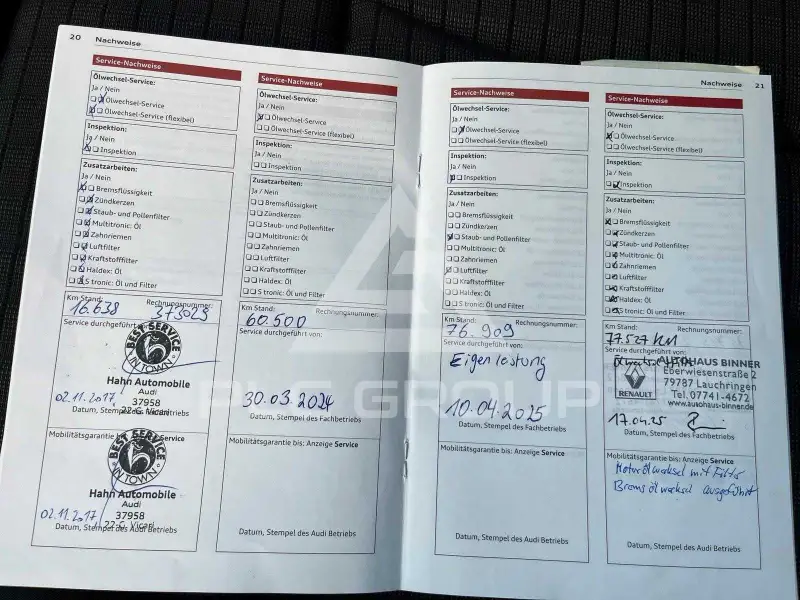 20 Nachweise
Service-Nachweise
Ölwechsel-Service:
Ja / Nein
Ölwechsel-Service
Ölwechsel-Service (flexibel)
Inspektion:
Ja / Nein
Inspektion
Zusatzarbeiten:
Ja / Nein
Bremsflüssigkeit
Zündkerzen
Staub- und Pollenfilter
Multitronic: Öl
Zahnriemen
Luftfilter
Kraftstofffilter
Haldex: Öl
S tronic: Öl und Filter
Km Stand: Rechnungsnummer:
16.638 373029
Service durchgeführt von:
BEST SERVICE
IN TOWN
Hahn Automobile
Audi
37958
02.11.2017
Datum, Stempel des Fachbetriebs
Mobilitätsgarantie bis: Anzeige Service
BEST SERVICE
IN TOWN
Hahn Automobile
Audi
37958
02.11.2017
Datum, Stempel des Audi Betriebs
Service-Nachweise
Ölwechsel-Service:
Ja / Nein
Ölwechsel-Service
Ölwechsel-Service (flexibel)
Inspektion:
Ja / Nein
Inspektion
Zusatzarbeiten:
Ja / Nein
Bremsflüssigkeit
Zündkerzen
Staub- und Pollenfilter
Multitronic: Öl
Zahnriemen
Luftfilter
Kraftstofffilter
Haldex: Öl
S tronic: Öl und Filter
Km Stand: Rechnungsnummer:
60.500
Service durchgeführt von:
30.03.2024
Datum, Stempel des Fachbetriebs
Mobilitätsgarantie bis: Anzeige Service
Datum, Stempel des Audi Betriebs
Nachweise 21
Service-Nachweise
Ölwechsel-Service:
Ja / Nein
Ölwechsel-Service
Ölwechsel-Service (flexibel)
Inspektion:
Ja / Nein
Inspektion
Zusatzarbeiten:
Ja / Nein
Bremsflüssigkeit
Zündkerzen
Staub- und Pollenfilter
Multitronic: Öl
Zahnriemen
Luftfilter
Kraftstofffilter
Haldex: Öl
S tronic: Öl und Filter
Km Stand: Rechnungsnummer:
76.909
Service durchgeführt von:
Eigenleistung
10.04.2025
Datum, Stempel des Fachbetriebs
Mobilitätsgarantie bis: Anzeige Service
Datum, Stempel des Audi Betriebs
Service-Nachweise
Ölwechsel-Service:
Ja / Nein
Ölwechsel-Service
Ölwechsel-Service (flexibel)
Inspektion:
Ja / Nein
Inspektion
Zusatzarbeiten:
Ja / Nein
Bremsflüssigkeit
Zündkerzen
Staub- und Pollenfilter
Multitronic: Öl
Zahnriemen
Luftfilter
Kraftstofffilter
Haldex: Öl
S tronic: Öl und Filter
Km Stand: Rechnungsnummer:
77.527 KM
Service durchgeführt von:
AUTOHAUS BINNER
Eberwiesenstraße 2
79787 Lauchringen
Tel. 07741-4672
www.autohaus-binner.de
RENAULT
17.04.25
Datum, Stempel des Fachbetriebs
Mobilitätsgarantie bis: Anzeige Service
Motorölwechsel mit Filter
Bremsölwechsel ausgeführt
Datum, Stempel des Audi Betriebs
GROUP